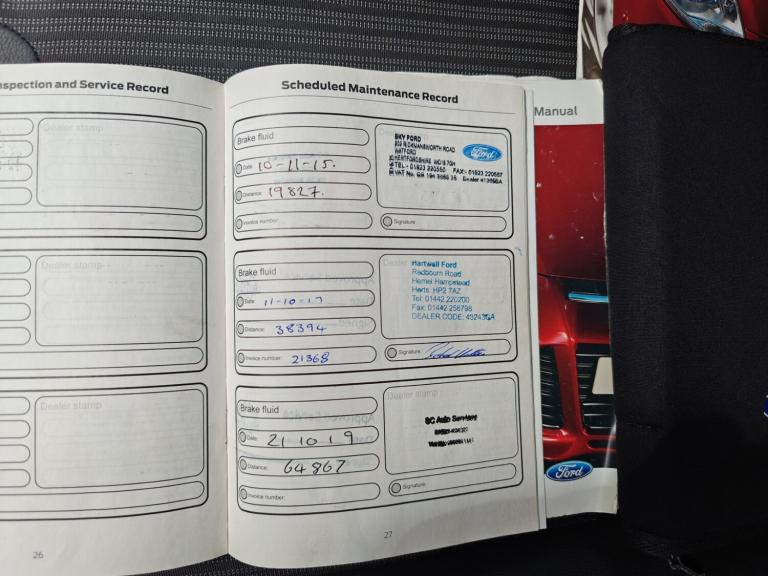 nspection and Service Record
Dealer stamp
Dealer stamp
Dealer stamp
26
Scheduled Maintenance Record
Brake fluid
Date: 10-11-15.
Distance: 19827.
Invoice number:
SKY FORD
RICKMANSWORTH ROAD
WATFORD
HERTFORDSHIRE WD18 7GH
TEL:- 01923 220550 FAX:- 01923 220557
VAT No. GB
Ford
Signature:
Brake fluid
Date: 11-10-17
Distance: 38394
Invoice number: 21368
Dealer
Hartwell Ford
Redbourn Road
Hemel Hempstead
Herts. HP2 7AZ
Tel: 01442 220200
Fax: 01442 256798
DEALER CODE:
Signature:
Brake fluid
Date: 21 10 19
Distance: 64867
Invoice number:
Dealer stamp
SC Auto Services
Signature:
27
Manual
Ford